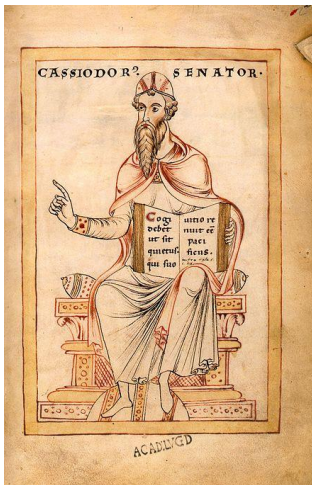 CASSIODOR⁹. SENATOR.
Cogi
debet
ut sit
quietus.
qui suo
uitio re
nuit eē
paci
ACAD.LVGD